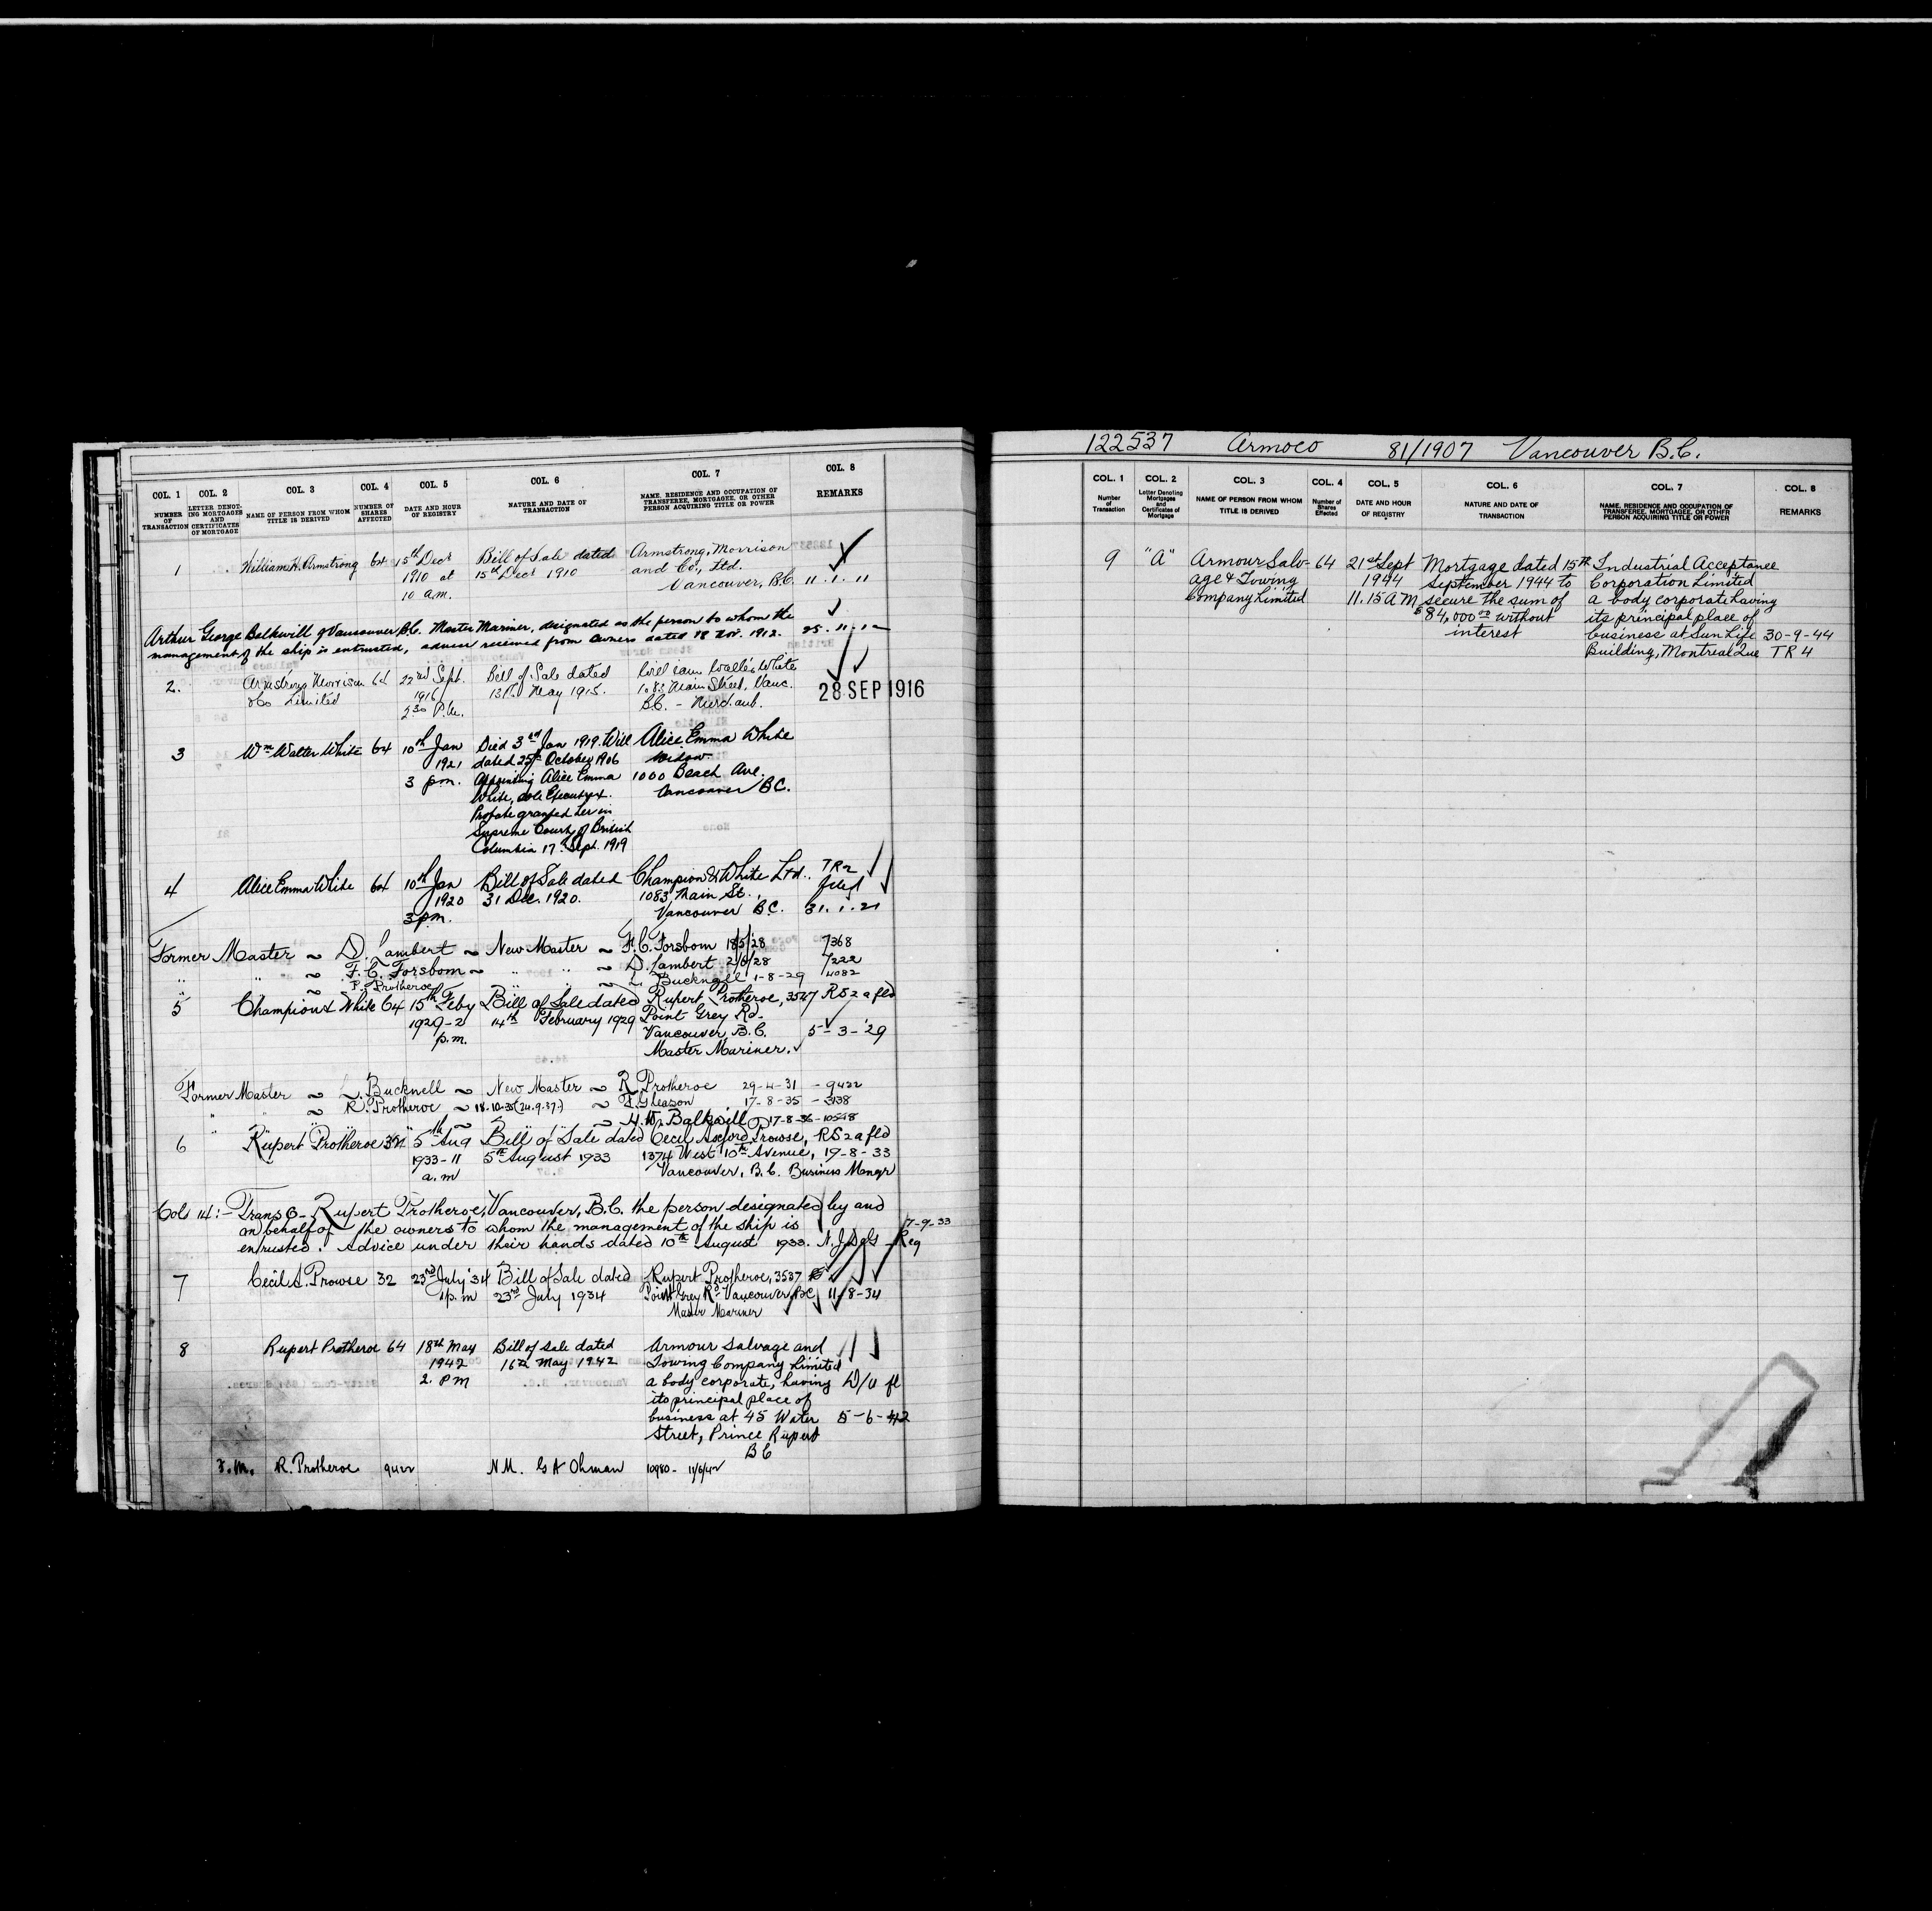 COL. 1 COL. 2 COL. 3 COL. 4 COL. 5 COL. 6 COL. 7 COL. 8
NUMBER OF TRANSACTION
LETTER DENOTING MORTGAGES AND CERTIFICATES OF MORTGAGE
NAME OF PERSON FROM WHOM TITLE IS DERIVED
NUMBER OF SHARES AFFECTED
DATE AND HOUR OF REGISTRY
NATURE AND DATE OF TRANSACTION
NAME, RESIDENCE AND OCCUPATION OF TRANSFEREE, MORTGAGEE, OR OTHER PERSON ACQUIRING TITLE OR POWER
REMARKS
1 William H. Armstrong 64 15th Decr Bill of Sale dated Armstrong, Morrison
1910 at 15th Decr 1910 and Co., Ltd.
10 a.m. Vancouver, B.C. 11.1.11
Arthur George Balkwill of Vancouver B.C. Master Mariner, designated as the person to whom the
management of the ship is entrusted, advice received from owners dated 18 Nov. 1912. 25.11.12
2. Armstrong Morrison 64 22nd Sept. Bill of Sale dated William Walter White
& Co Limited 1916 13th May 1915. 1083 Main Street, Vanc.
2.30 P.M. B.C. - 28 SEP 1916
3 Wm Walter White 64 10th Jan Died 3rd Jan 1919. Will Alice Emma White
1921 dated 25th October 1906 Widow
3 pm. appointing Alice Emma 1000 Beach Ave.
White, sole Executrix. Vancouver B.C.
Probate granted her in
Supreme Court of British
Columbia 17th Sept. 1919
4 Alice Emma White 64 10th Jan Bill of Sale dated Champion & White Ltd. TR2
1920 31 Dec. 1920. 1083 Main St., filed
3 pm. Vancouver B.C. 31.1.21
Former Master ~ D. Lambert ~ New Master ~ F.C. Forsbom 18/5/28 7368
" " ~ F.C. Forsbom ~ " " ~ D. Lambert 2/8/28 7222
" " ~ P. Protheroe ~ L. Bucknell 1-8-29 4082
5 Champion & White 64 15th Feby Bill of Sale dated Rupert Protheroe, 3537 RS2a fld
1929-2 14th February 1929 Point Grey Rd.
p.m. Vancouver B.C. 5-3-'29
Master Mariner.
Former Master ~ L. Bucknell ~ New Master ~ R. Protheroe 29-4-31 - 9422
" " ~ R. Protheroe ~ 18.10.35 (24.9.37.) ~ F. Gleason 17-8-35 - 3138
" " ~ " ~ H. W. Balkwill 17-8-36-10598
6 Rupert Protheroe 32 5th Aug Bill of Sale dated Cecil Axford Prowse, RS2a fld
1933-11 5th August 1933 1374 West 10th Avenue, 19-8-33
a.m Vancouver, B.C. Business Mangr
Cols 14:- Trans 6 - Rupert Protheroe, Vancouver, B.C. the person designated by and
on behalf of the owners to whom the management of the ship is 7-9-33
entrusted. Advice under their hands dated 10th August 1933. Reg
7 Cecil A. Prowse 32 23rd July '34 Bill of Sale dated Rupert Protheroe, 3537
1 p.m 23rd July 1934 Point Grey Rd Vancouver, BC 11/8-34
Master Mariner
8 Rupert Protheroe 64 18th May Bill of sale dated Armour Salvage and
1942 16th May 1942 Towing Company Limited
2. PM a body corporate, having W/U fl
its principal place of
business at 45 Water 5-6-42
Street, Prince Rupert
BC
F.M. R. Protheroe 9422 N.M. G A Ohman 10980 - 11/6/42
122537 Armoco 81/1907 Vancouver B.C.
COL. 1 COL. 2 COL. 3 COL. 4 COL. 5 COL. 6 COL. 7 COL. 8
Number of Transaction
Letter Denoting Mortgages and Certificates of Mortgage
NAME OF PERSON FROM WHOM TITLE IS DERIVED
Number of Shares Effected
DATE AND HOUR OF REGISTRY
NATURE AND DATE OF TRANSACTION
NAME, RESIDENCE AND OCCUPATION OF TRANSFEREE, MORTGAGEE, OR OTHER PERSON ACQUIRING TITLE OR POWER
REMARKS
9 "A" Armour Salv- 64 21st Sept Mortgage dated 15th Industrial Acceptance
age & Towing 1944 September 1944 to Corporation Limited
Company Limited 11.15 AM secure the sum of a body corporate having
$84,000.00 without its principal place of
interest business at Sun Life 30-9-44
Building, Montreal Que TR 4